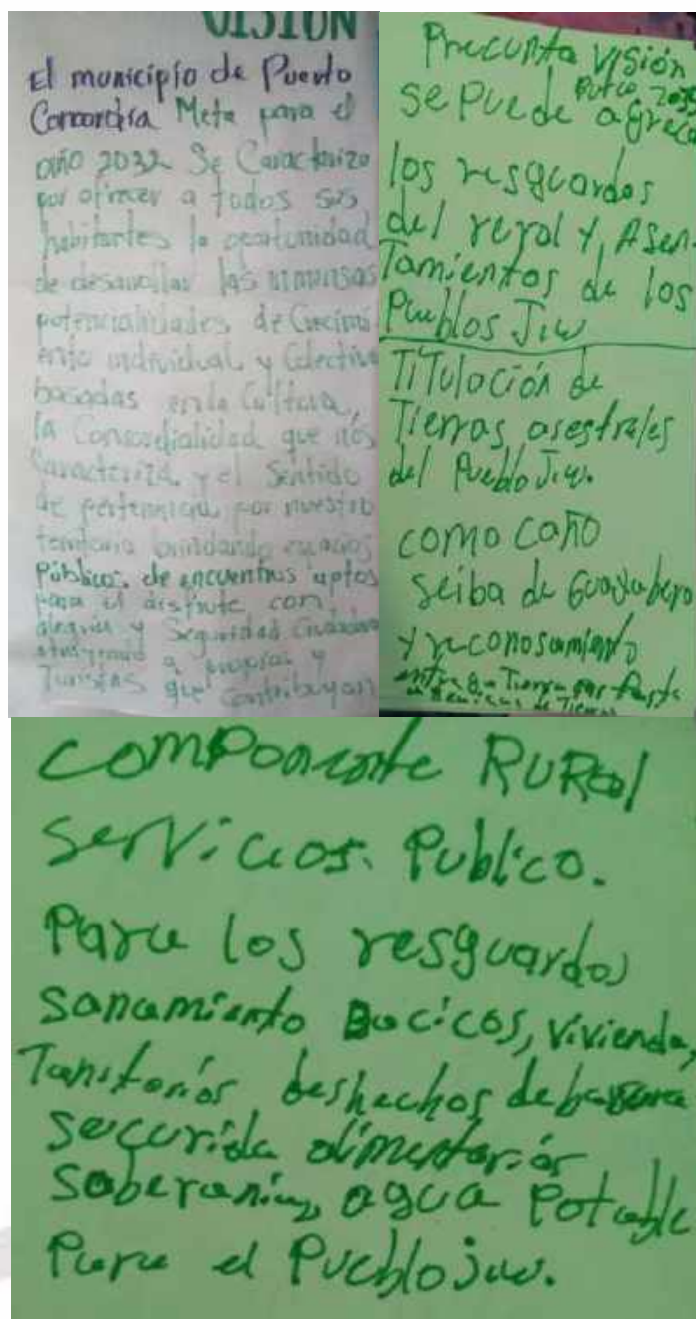 VISION
El municipio de Puerto
Concordia Meta para el
año 2032 Se Caracteriza
por ofrecer a todos sus
habitantes la oportunidad
de desarrollar las inmensas
potencialidades de Crecimi
ento individual y Colectivo
basadas en la Cultura,
la Concordialidad que nos
Caracteriza y el Sentido
de pertenencia por nuestro
territorio brindando espacios
Públicos de encuentros aptos
para el disfrute con
alegria y Seguridad Ciudadana
a propios y
Turistas que contribuyan
Precunta visión
se puede agreca
los resguardos
del rural y, Asen-
Tamientos de los
Pueblos Jiw
TiTulación de
Tierras asestrales
del Pueblo Jiw.
como caño
seiba de Guayabero
y reconosamiento
Tierra por Parte
de Tierras
componente RURal
servicios. Publico.
Para los resguardos
sanamiento Bacicos, vivienda,
deshechos de basura
securida alimentarios
soberania, agua Potable
Para el Pueblo jiw.